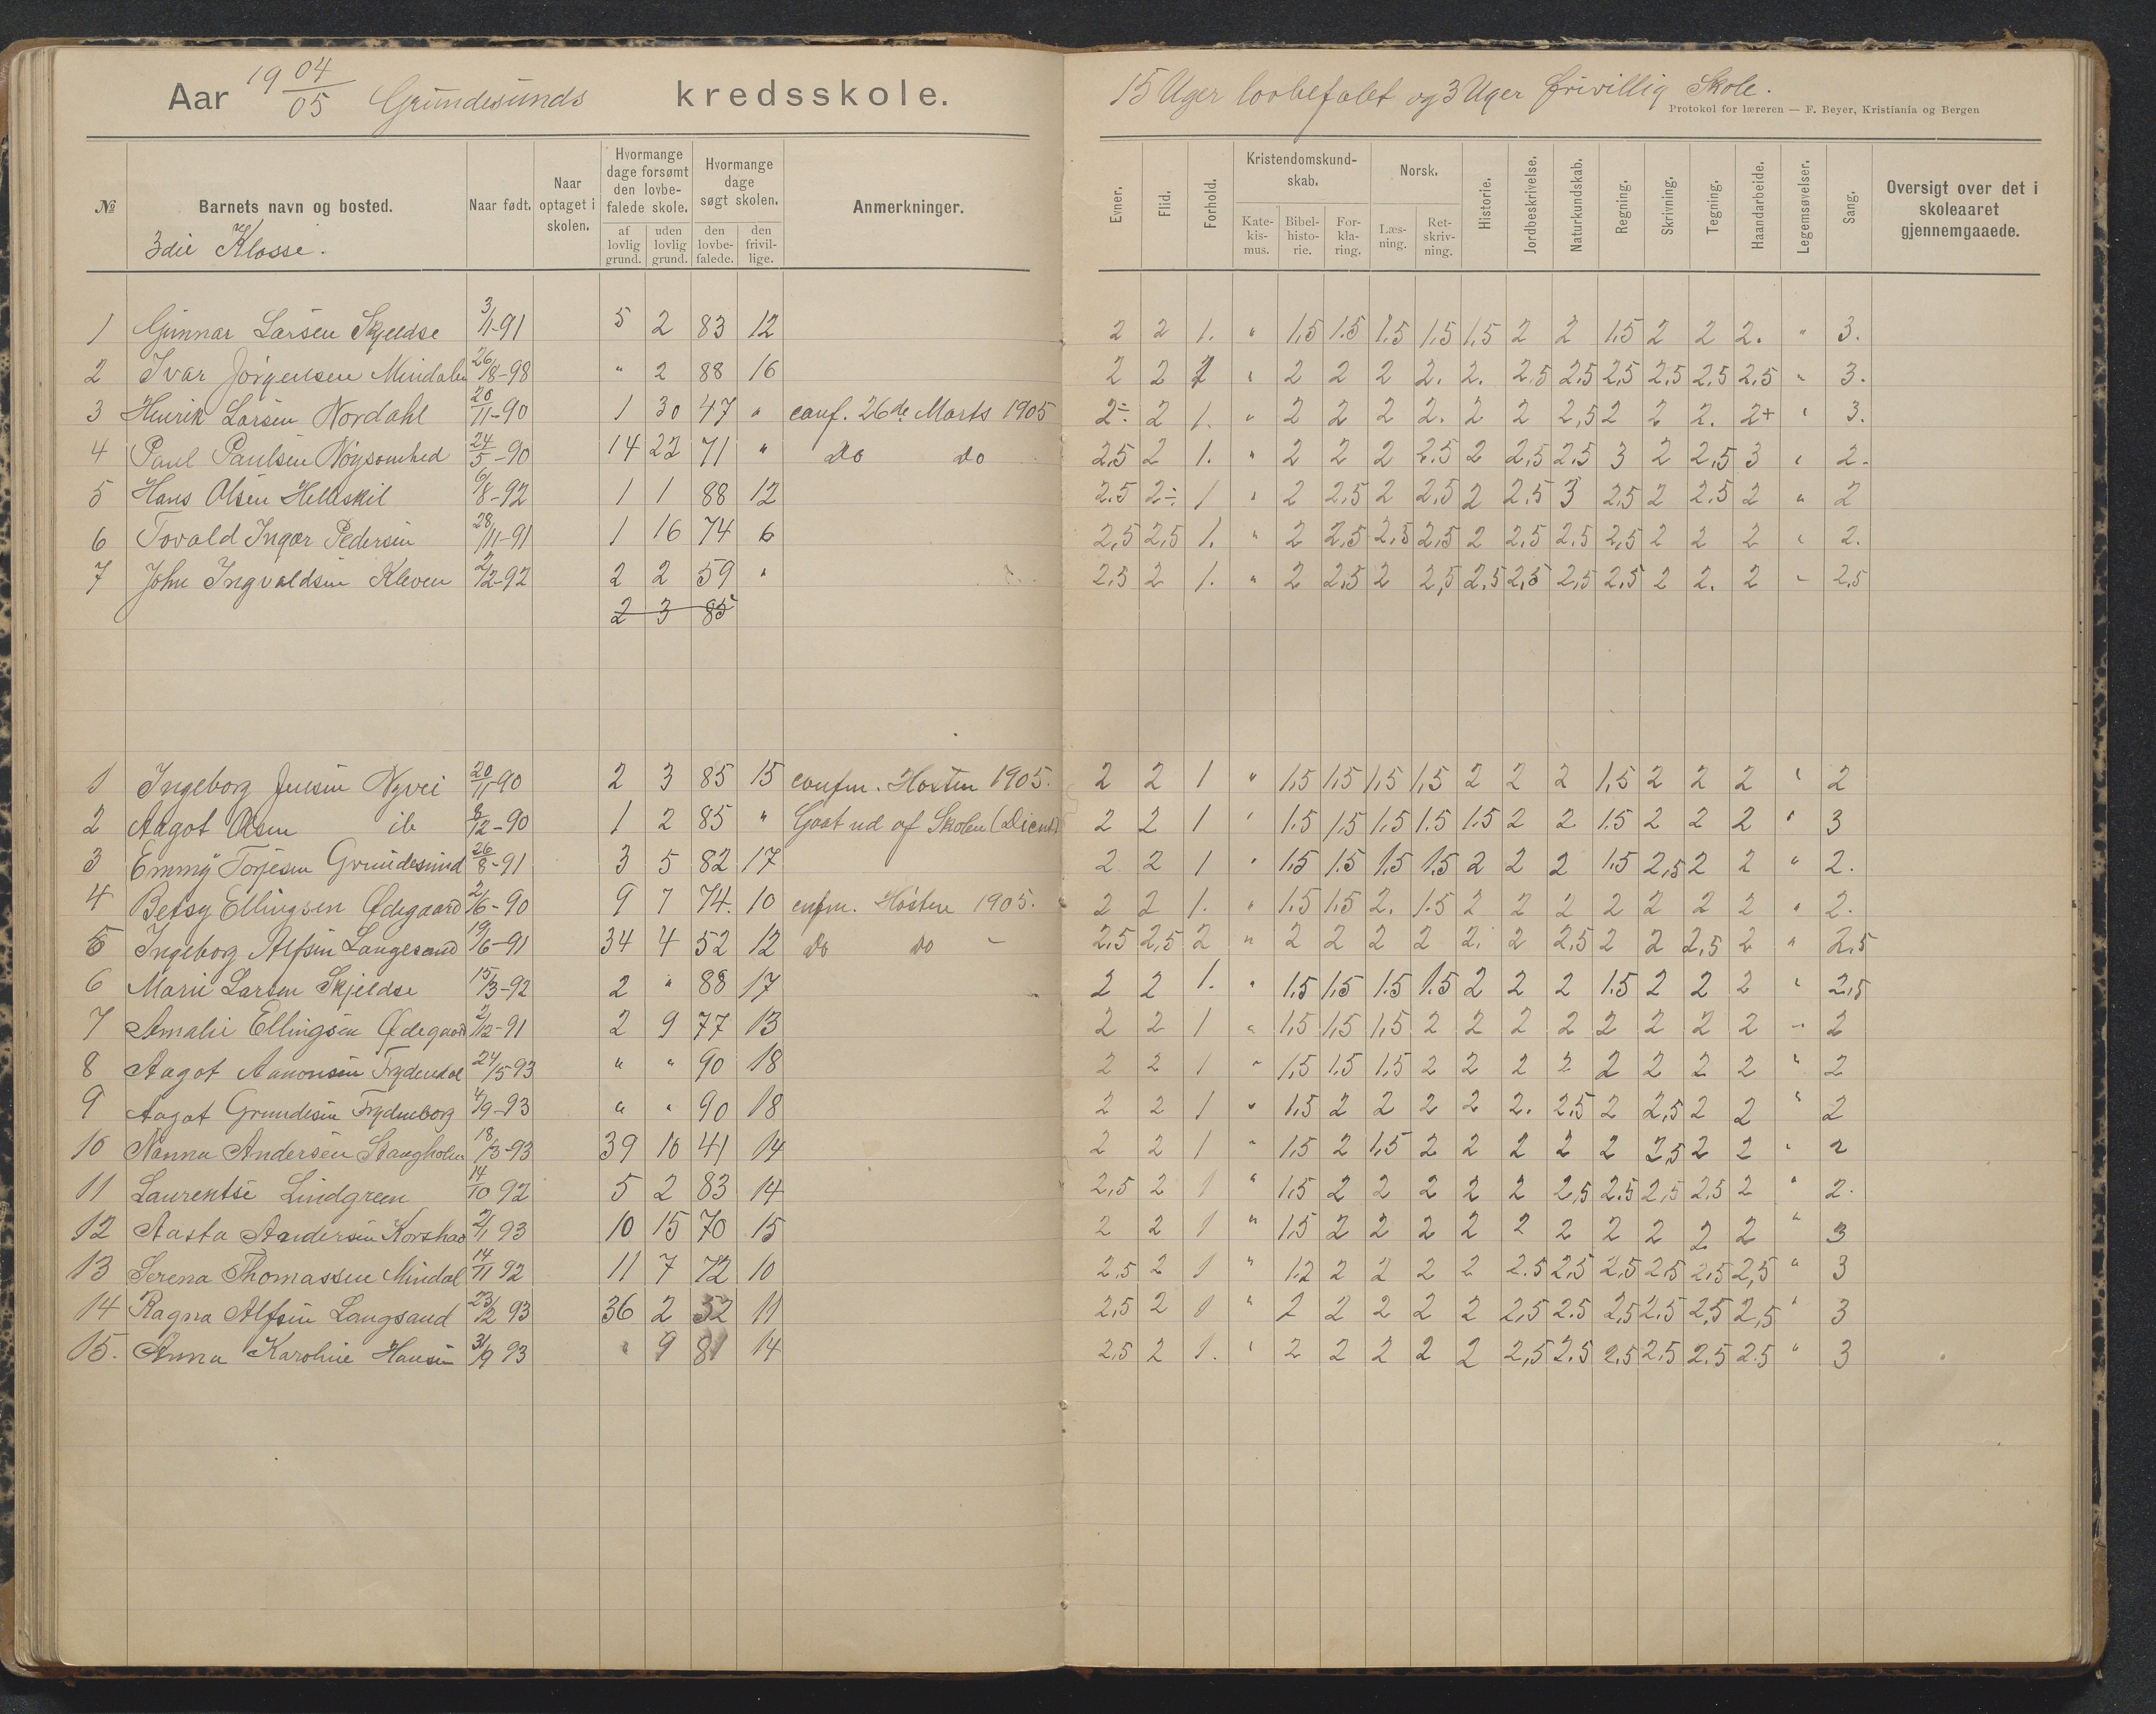 Aar 19 04/05 Grundesunds kredsskole.
15 Uger lovbefalet og 3 Uger frivillig Skole.
Protokol for læreren — F. Beyer, Kristiania og Bergen
№ Barnets navn og bosted. Naar født. Naar optaget i skolen. Hvormange dage forsømt den lovbefalede skole. af lovlig grund. uden lovlig grund. Hvormange dage søgt skolen. den lovbefalede. den frivillige. Anmerkninger. Evner. Flid. Forhold. Kristendomskundskab. Katekismus. Bibelhistorie. Forklaring. Norsk. Læsning. Retskrivning. Historie. Jordbeskrivelse. Naturkundskab. Regning. Skrivning. Tegning. Haandarbeide. Legemsøvelser. Sang. Oversigt over det i skoleaaret gjennemgaaede.
3die Klasse.
1 Gunnar Larsen Skjeldsø 3/11-91 5 2 83 12 2 2 1. " 1.5 1.5 1.5 1.5 1.5 2 2 1.5 2 2 2. " 3.
2 Ivar Jörgensen Mindalen 26/8-98 " 2 88 16 2 2 1 " 2 2 2 2. 2. 2.5 2.5 2.5 2.5 2.5 2.5 " 3.
3 Henrik Larsen Nordahl 20/11-90 1 30 47 " conf. 26de Marts 1905 2÷ 2 1. " 2 2 2 2. 2 2 2,5 2 2 2. 2+ " 3.
4 Paul Paulsen Nøysomhed 24/5-90 14 22 71 " do do 2,5 2 1. " 2 2 2 2.5 2 2,5 2.5 3 2 2,5 3 " 2.
5 Hans Olsen Helleskil 6/8-92 1 1 88 12 2.5 2÷ 1 " 2 2,5 2 2,5 2 2,5 3 2,5 2 2,5 2 " 2
6 Tovald Ingar Pedersen 28/11-91 1 16 74 6 2,5 2,5 1. " 2 2,5 2,5 2,5 2 2.5 2.5 2,5 2 2 2 " 2.
7 John Ingvaldsen Kleven 2/12-92 2 2 59 " 2,5 2 1. " 2 2,5 2 2,5 2,5 2,5 2,5 2,5 2 2. 2 " 2,5
2 3 85
1 Ingeborg Jensen Nyvei 20/11-90 2 3 85 15 confm. Høsten 1905. 2 2 1 " 1,5 1,5 1,5 1,5 2 2 2 1,5 2 2 2 " 2
2 Aagot Olsen ib 8/12-90 1 2 85 " Gaat ud af Skolen (Dienst) 2 2 1 " 1.5 1,5 1.5 1.5 1.5 2 2 1.5 2 2 2 " 3
3 Emmy Torjesen Grundesund 26/8-91 3 5 82 17 2 2 1 " 1.5 1.5 1.5 1.5 2 2 2 1.5 2,5 2 2 " 2.
4 Betsy Ellingsen Ødegaard 2/6-90 9 7 74. 10 cnfm. Høsten 1905. 2 2 1. " 1.5 1.5 2. 1.5 2 2 2 2 2 2 2 " 2.
5 Ingeborg Alfsen Langesand 19/6-91 34 4 52 12 do do - 2,5 2,5 2 " 2 2 2 2 2. 2 2,5 2 2 2,5 2 " 2,5
6 Marie Larsen Skjeldsø 15/3-92 2 " 88 17 2 2 1. " 1.5 1,5 1.5 1.5 2 2 2 1.5 2 2 2 " 2,5
7 Amalie Ellingsen Ødegaard 2/12-91 2 9 77 13 2 2 1 " 1,5 1,5 1,5 2 2 2 2 2 2 2 2 " 2
8 Aagot Aanonsen Frydendal 24/5 93 " " 90 18 2 2 1 " 1,5 1.5 1,5 2 2 2 2 2 2 2 2 " 2
9 Aagot Grundesen Frydenborg 4/9-93 " " 90 18 2 2 1 " 1.5 2 2 2 2 2. 2,5 2 2,5 2 2 " 2
10 Nanna Andersen Stangholm 18/3-93 39 10 41 14 2 2 1 " 1,5 2 1,5 2 2 2 2 2 2,5 2 2 " 2
11 Laurentse Lindgreen 14/10 92 5 2 83 14 2,5 2 1 " 1,5 2 2 2 2 2 2,5 2.5 2,5 2,5 2 " 2.
12 Aasta Andersen Korshav 2/1 93 10 15 70 15 2 2 1 " 1,5 2 2 2 2 2 2 2 2 2 2 " 3
13 Serena Thomassen Mindal 14/11 92 11 7 72 10 2,5 2 1 " 1.2 2 2 2 2 2.5 2,5 2,5 2,5 2,5 2,5 " 3
14 Ragna Alfsen Langsand 23/2 93 36 2 52 11 2,5 2 1 " 2 2 2 2 2 2,5 2.5 2,5 2,5 2,5 2,5 " 3
15. Anna Karoline Hansen 3/9 93 " 9 81 14 2,5 2 1. " 2 2 2 2 2 2,5 2.5 2.5 2.5 2.5 2.5 " 3